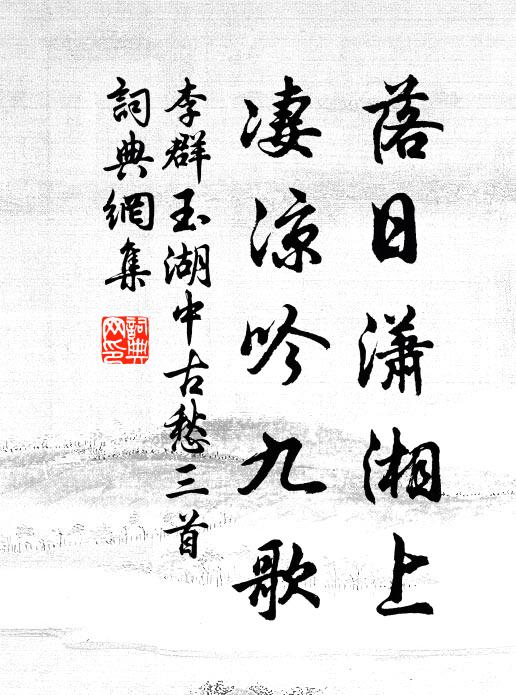 落日瀟湘上
凄涼吟九歌
李群玉湖中古愁三首
詞典網集
詞典网印